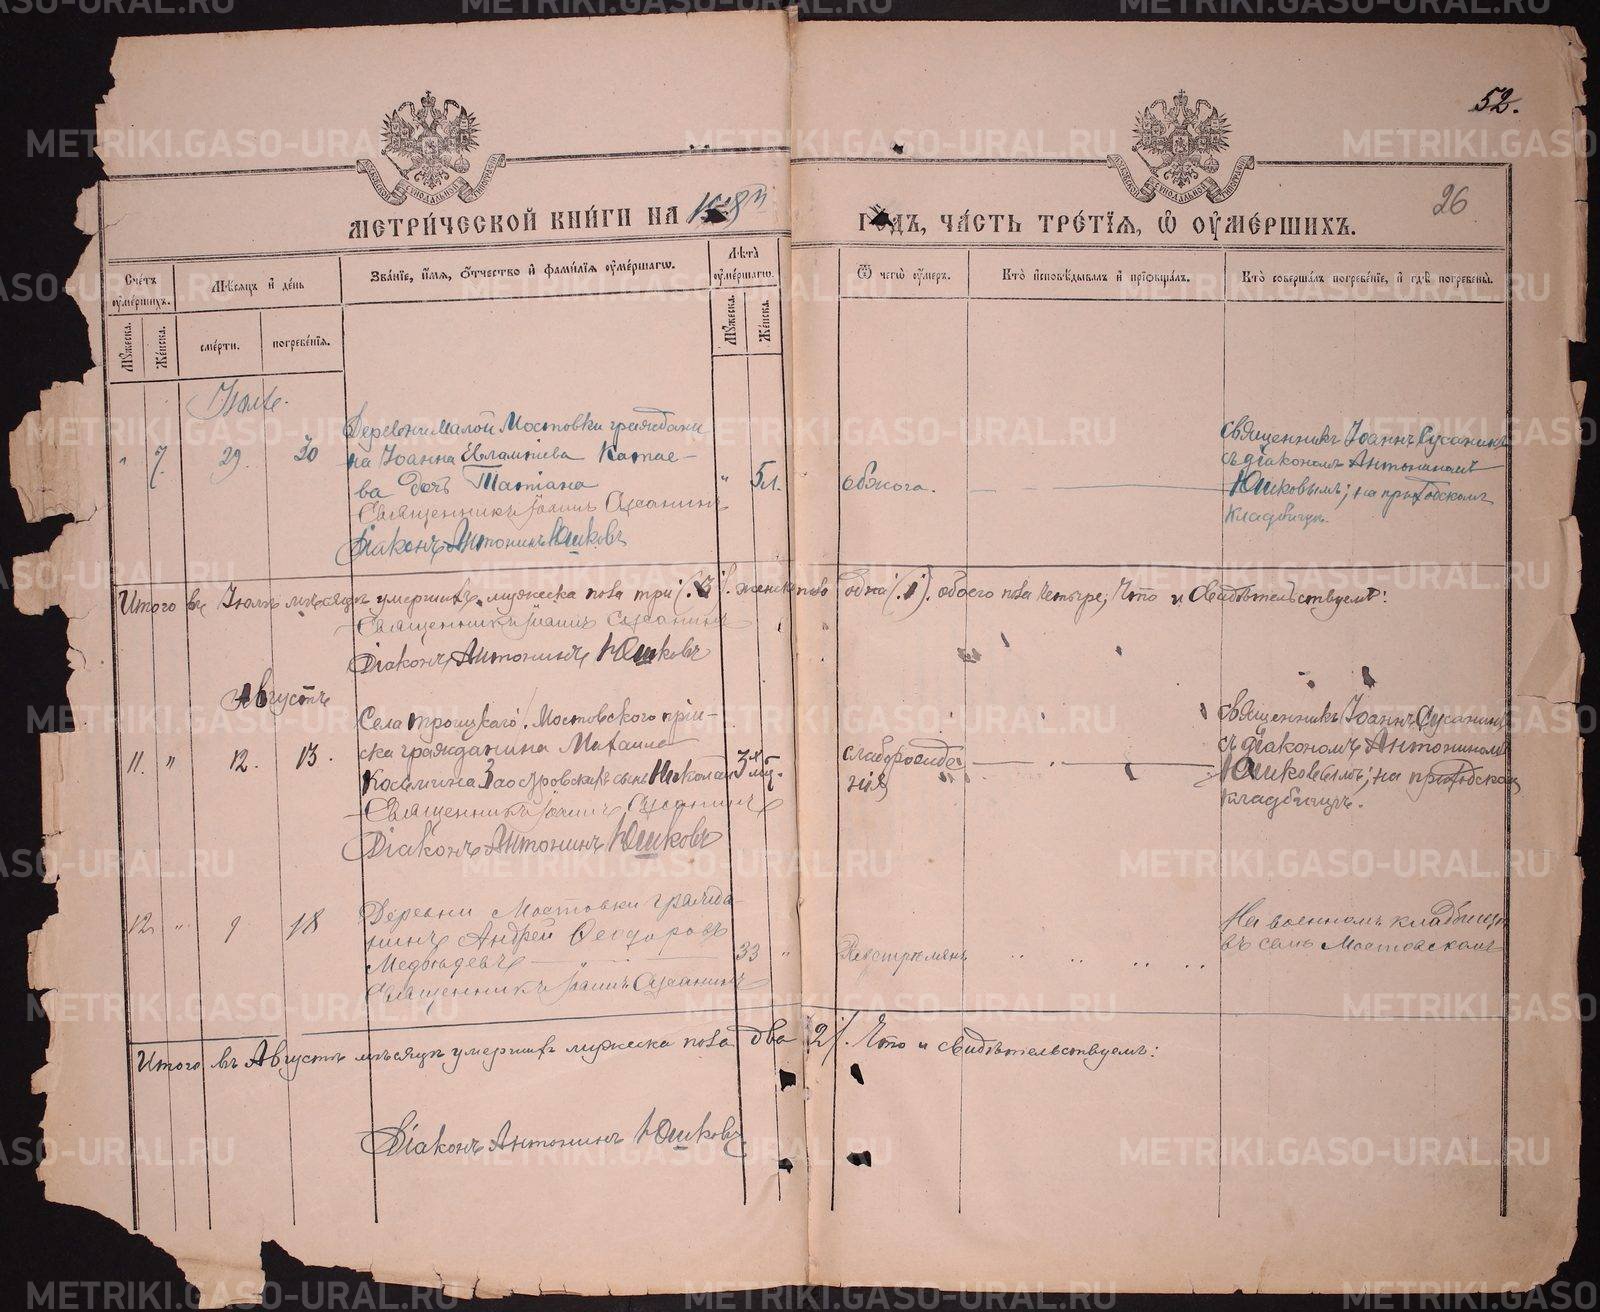 52.
26
МЕТРИ́ЧЕСКОЙ КНИ́ГИ НА
ГО́ДЪ, ЧА́СТЬ ТРЕ́ТЇѦ, Ѡ҆ ОУ҆МЕ́РШИХЪ.
Сче́тъ оу҆ме́ршихъ.
Мѣ́сѧцъ и҆ де́нь
Зва́нїе, и҆́мѧ, ѻ҆́тчество и҆ фами́лїѧ оу҆ме́ршагѡ.
Лѣ́та оу҆ме́ршагѡ.
Ѿ чегѡ̀ оу҆́меръ.
Кто̀ и҆сповѣ́дывалъ и҆ прїѡбща́лъ.
Кто̀ соверша́лъ погребе́нїе, и҆ гдѣ̀ погребены̀.
Мꙋ́жеска.
Же́нска.
сме́рти.
погребе́нїѧ.
Мꙋ́жеска.
Же́нска.
Іюль.
" 7. 29. 30
Деревни Малой Мостовки граждани
на Іоанна Евлампіева Катае-
ва дочь Татіана
Священникъ Іоаннъ Сусанинъ
Діаконъ Антонинъ Юшковъ
" 5л.
обжога.
Священникъ Іоаннъ Сусанинъ
съ діакономъ Антониномъ
Юшковымъ; на приходскомъ
кладбищѣ.
Итого въ Іюлѣ мѣсяцѣ умершихъ мужеска пола три (3). женска пола одна (1). обоего пола четыре; Что и свидѣтельствуемъ:
Священникъ Іоаннъ Сусанинъ
Діаконъ Антонинъ Юшковъ
Августъ
11. " 12. 13.
Села Троицкаго, Мостовского пріи-
ска гражданина Михаила
Козьмина Заозровскихъ сынъ Николай
Священникъ Іоаннъ Сусанинъ
Діаконъ Антонинъ Юшковъ
3 мѣ.
слаборожде
нія
Священникъ Іоаннъ Сусанинъ
съ діакономъ Антониномъ
Юшковымъ; на приходскомъ
кладбищѣ.
12 " 9 18
Деревни Мостовки гражда-
нинъ Андрей Ѳеодоровъ
Медвѣдевъ
Священникъ Іоаннъ Сусанинъ
33 "
Разстрѣлянъ
На военномъ кладбищѣ
въ селѣ Мостовскомъ
Итого въ Августѣ мѣсяцѣ умершихъ мужеска пола два (2). Что и свидѣтельствуемъ:
Діаконъ Антонинъ Юшковъ